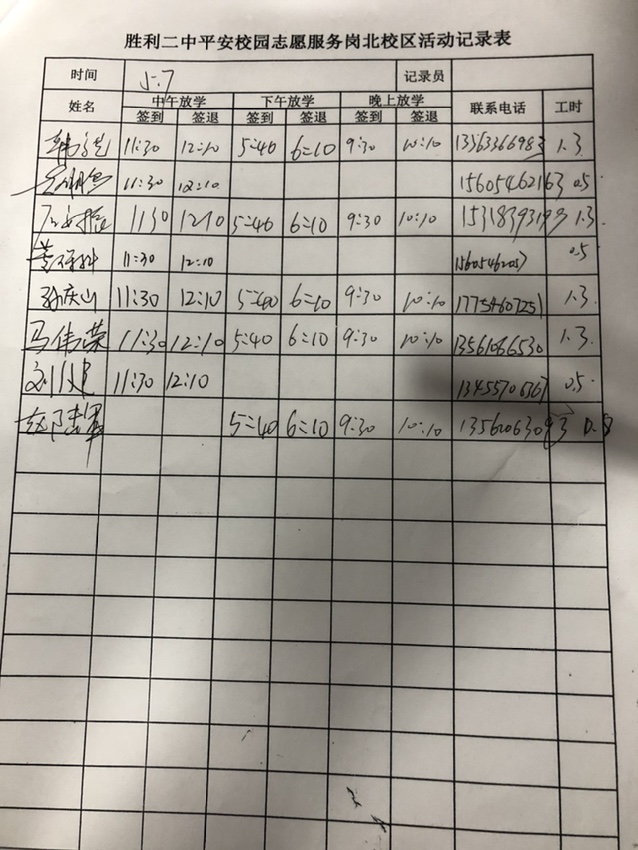 胜利二中平安校园志愿服务岗北校区活动记录表
时间 5.7 记录员
姓名 中午放学 下午放学 晚上放学 联系电话 工时
签到 签退 签到 签退 签到 签退
11:30 12:10 5:40 6:10 9:30 10:10 1.3
11:30 12:10 15605462163 0.5
11:30 12:10 5:40 6:10 9:30 10:10 1.3
11:30 12:10 0.5
孙庆山 11:30 12:10 5:40 6:10 9:30 10:10 17754607251 1.3
马伟荣 11:30 12:10 5:40 6:10 9:30 10:10 13561066530 1.3
11:30 12:10 13455706367 0.5
5:40 6:10 9:30 10:10 0.8